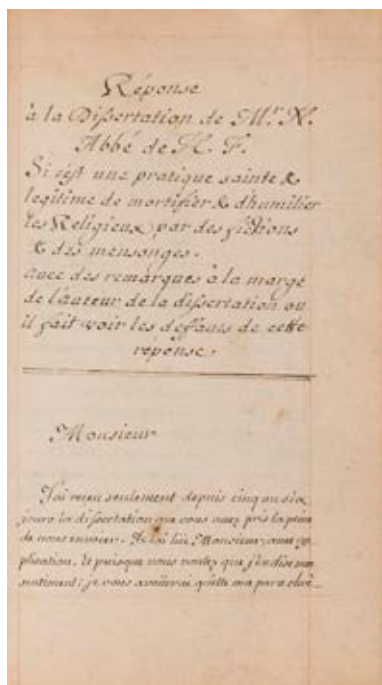 Réponse
à la Dissertation de Mr. N.
Abbé de H. F.
Si c'est une pratique sainte &
legitime de mortifier & d'humilier
les Religieux par des fictions
& des mensonges.
avec des remarques à la marge
de l'auteur de la dissertation ou
il fait voir les deffauts de cette
réponse.
Monsieur
J'ai receu seulement depuis cinq ou six
jours la dissertation que vous avez pris la peine
de nous envoier. Je l'ai lüe, Monsieur, avec ap-
plication. Et puisque vous voulez que j'en dise mon
sentiment; je vous avoüerai qu'elle m'a paru